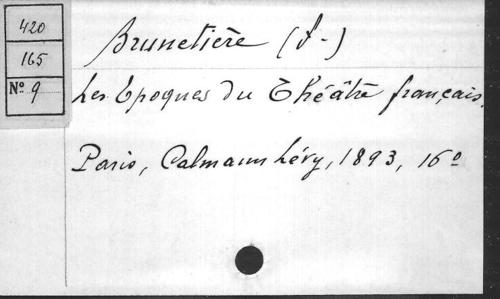 420
165
Nº 9
Brunetière (F-)
Les Epoques du Théâtre français.
Paris, Calmann Lévy, 1893, 16º